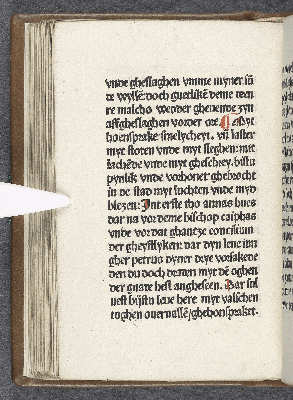 vnde gheslaghen vmme myner sū
de wyllē: doch guetlikē deme den
re malcho wedder gheuende syn
affgheslaghen vorder ore Myt
honsprake smelycheyt. vñ laster
myt stoten vnde myt sleghen: mit
lachēde vnde myt gheschrey. bistu
pynlik vnde vorhonet ghebrocht
in de stad myt luchten vnde myd
blezen: Int erste tho annas hues
dar na vor deme bisschop caiphas
vnde vor dat ghantze concilium
der gheystlyken: dar dyn leue iun
gher petrus dyner drye vorsakede
den du doch derren myt dē oghen
der gnade hest angheseen. Dar sul
uest bistu leue here myt valschen
toghen ouervallē/ghehonspraket.